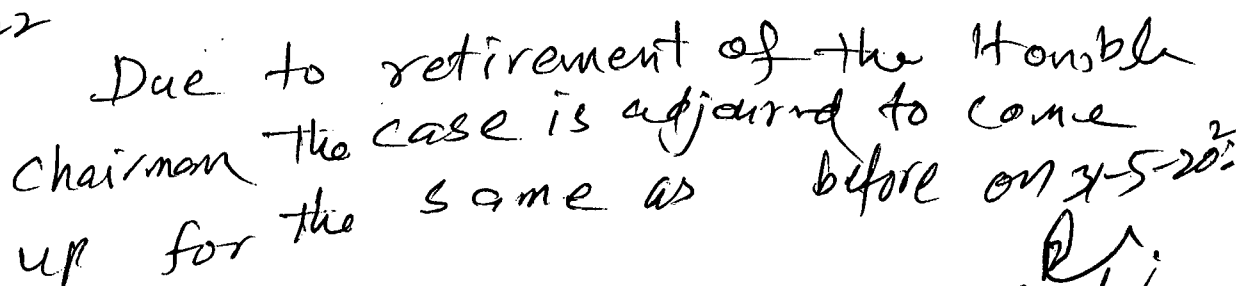 Due to retirement of the Hon,ble
chairman the case is adjourned to come
up for the same as before on 31-5-202